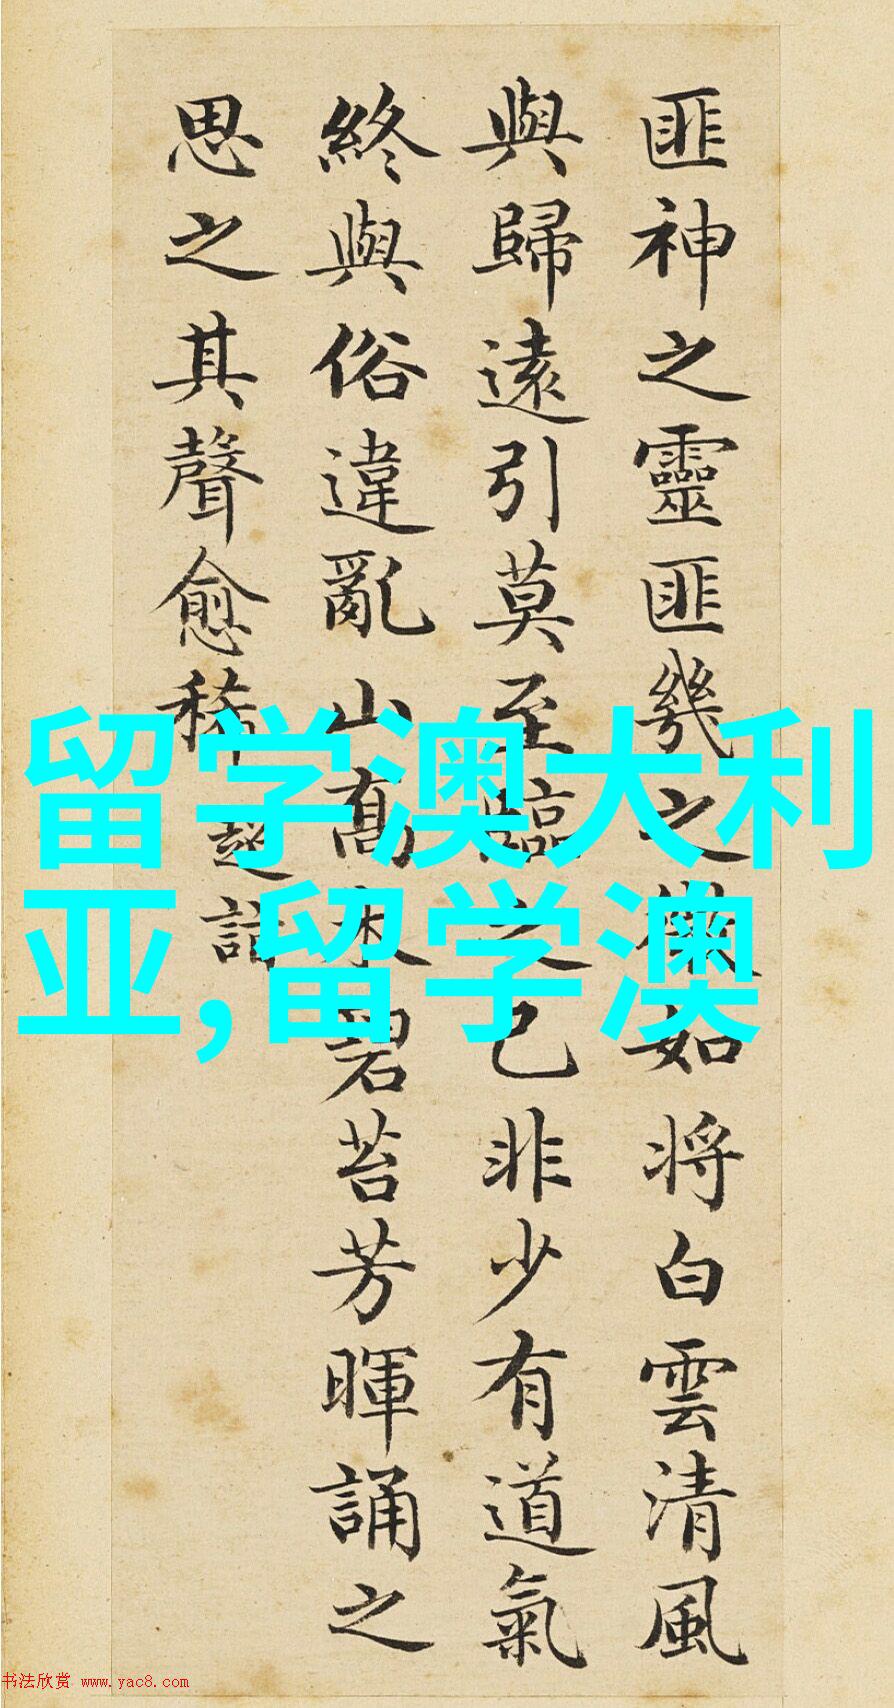 匪神之靈匪幾之微如將白雲清風
與歸遠引莫至臨之已非少有道氣
終與俗違亂山高木碧苔芳暉誦之
思之其聲愈稀 超詣
留学澳大利
亚,留学澳
书法欣赏 www.yac8.com